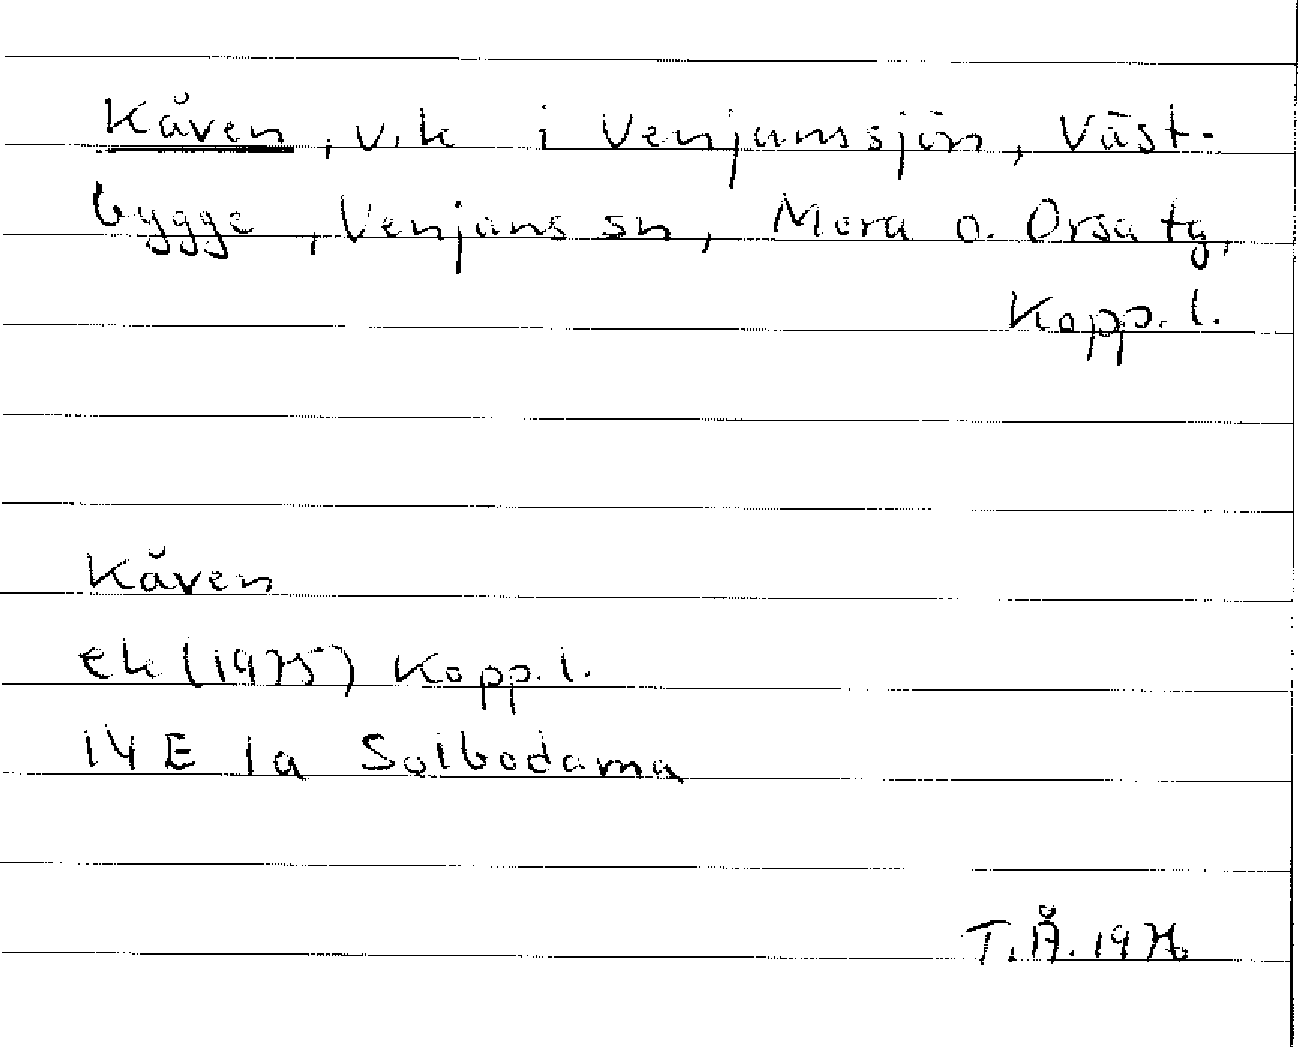 Kåven, vik i Venjanssjön, Väst-
bygge, Venjans sn, Mora o. Orsa tg,
Kopp. l.
Kåven
ek (1975) Kopp. l.
14 E 1a Solbodarna
T.Å. 1976